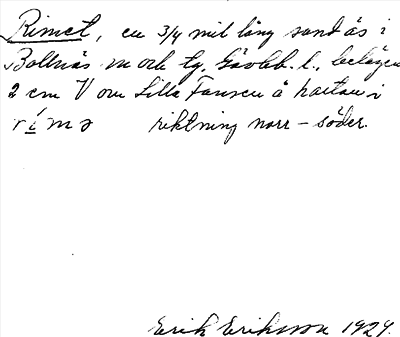 Rimet, en 3/4 mil lång sandås i
Bollnäs sn och tg, Gävleb. l., belägen
2 cm V om Lilla Fansen å kartan i
rímə riktning norr - söder.
Erik Eriksson 1929.